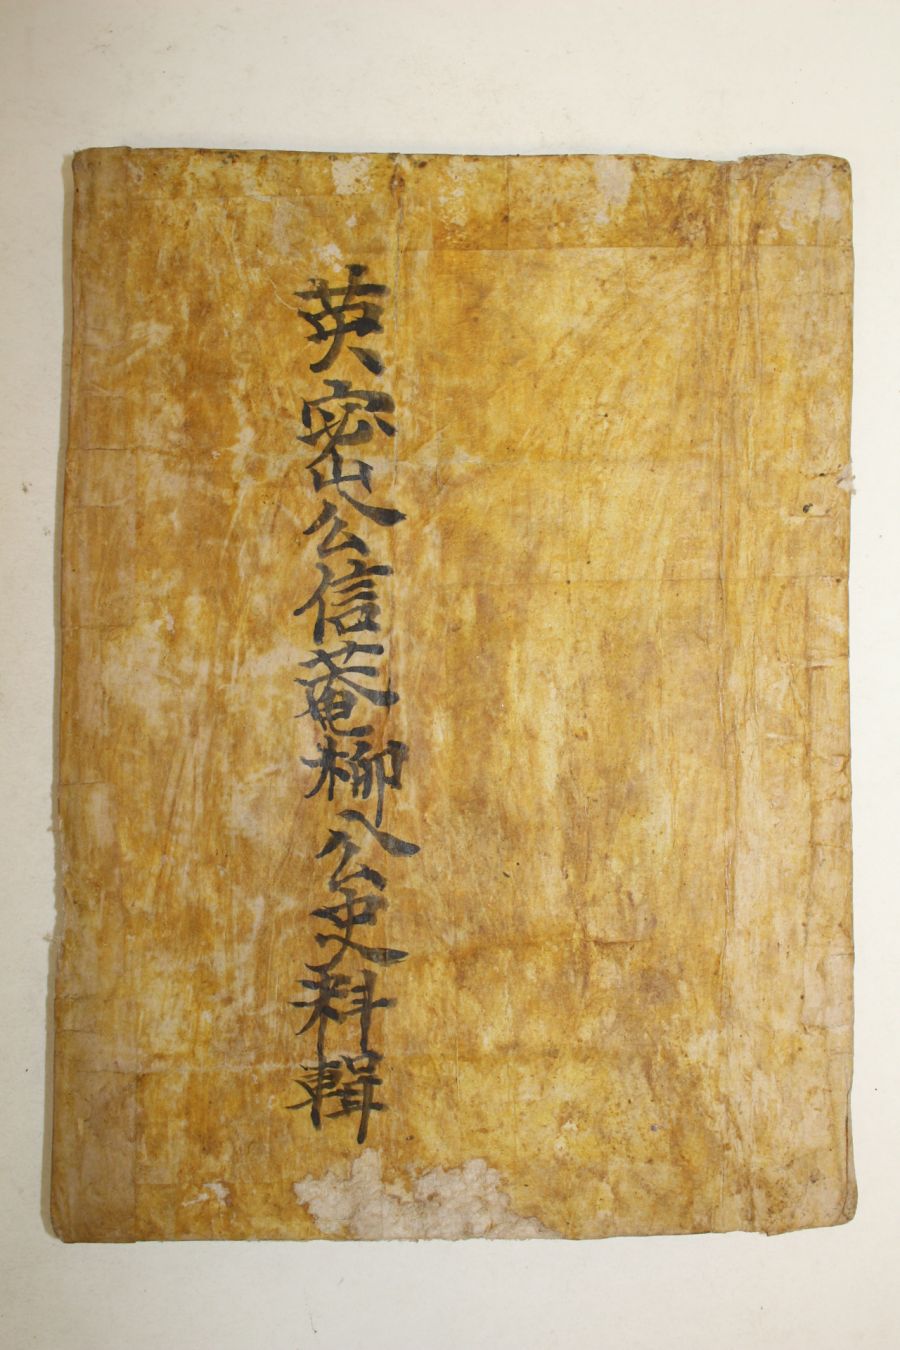 英密公信菴柳公史料輯